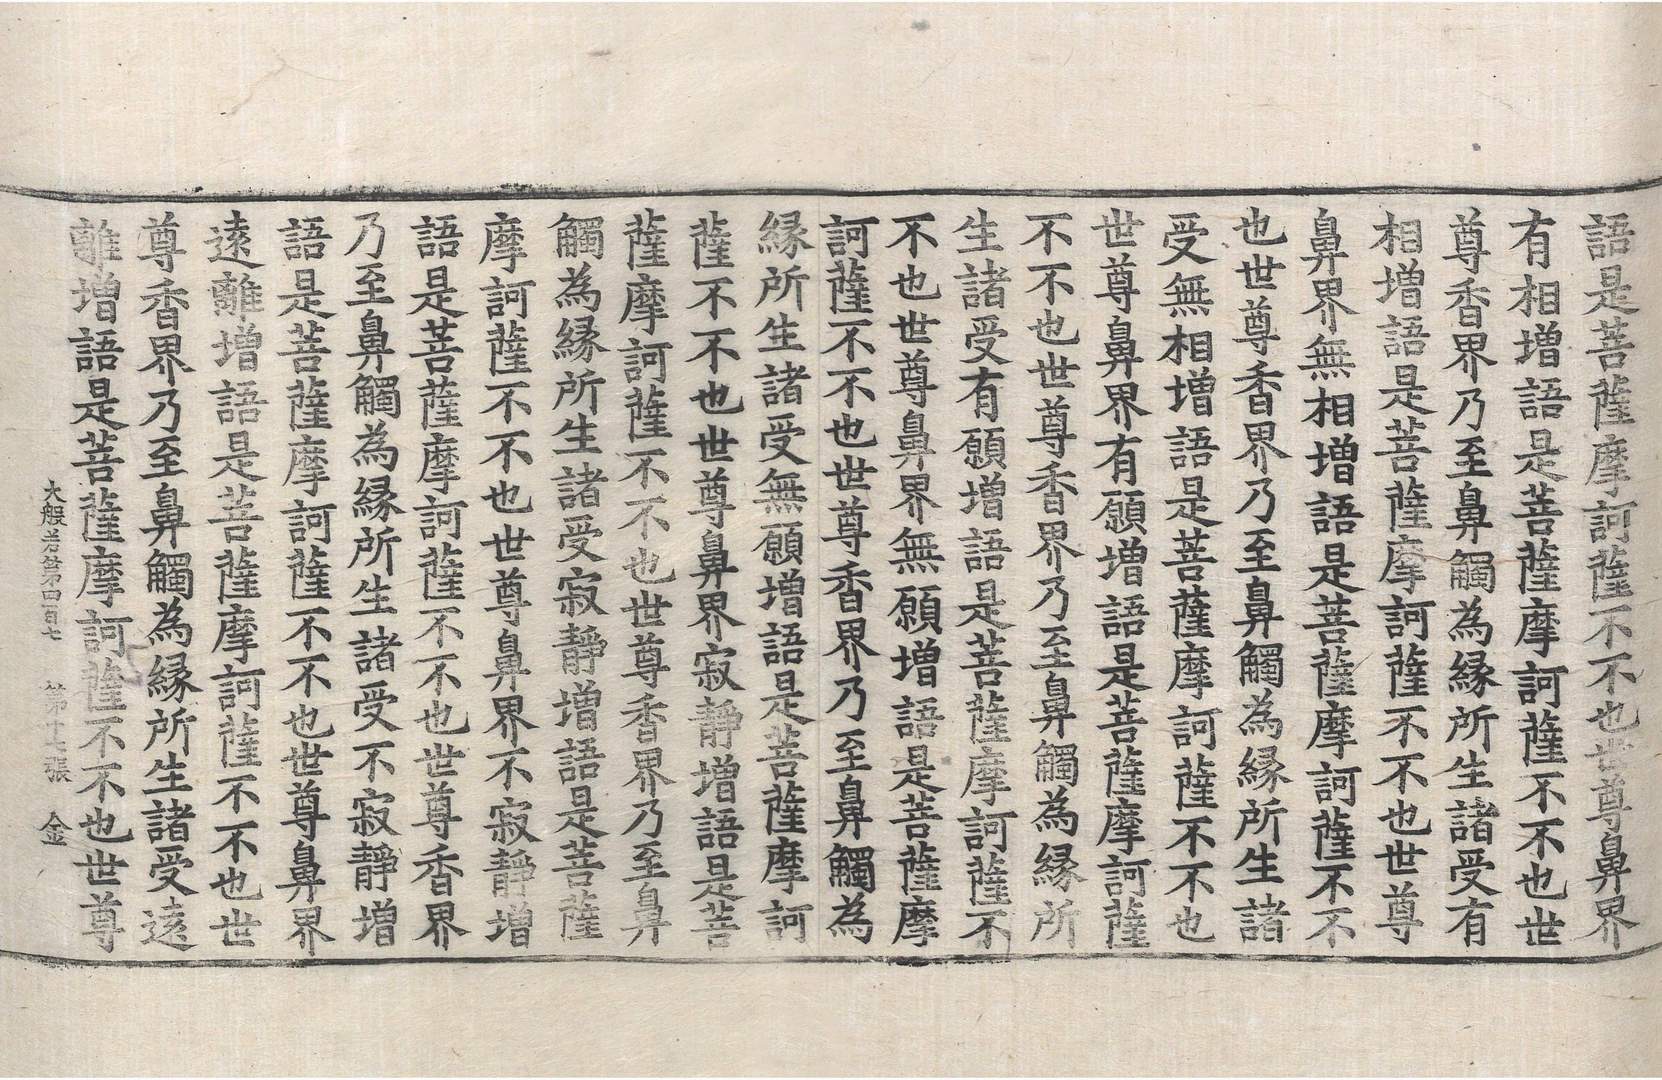 語是菩薩摩訶薩不不也世尊鼻界
有相増語是菩薩摩訶薩不不也世
尊香界乃至鼻觸為縁所生諸受有
相増語是菩薩摩訶薩不不也世尊
鼻界無相増語是菩薩摩訶薩不不
也世尊香界乃至鼻觸為縁所生諸
受無相増語是菩薩摩訶薩不不也
世尊鼻界有願増語是菩薩摩訶薩
不不也世尊香界乃至鼻觸為縁所
生諸受有願増語是菩薩摩訶薩不
不也世尊鼻界無願増語是菩薩摩
訶薩不不也世尊香界乃至鼻觸為
縁所生諸受無願増語是菩薩摩訶
薩不不也世尊鼻界寂靜増語是菩
薩摩訶薩不不也世尊香界乃至鼻
觸為縁所生諸受寂靜増語是菩薩
摩訶薩不不也世尊鼻界不寂靜増
語是菩薩摩訶薩不不也世尊香界
乃至鼻觸為縁所生諸受不寂靜増
語是菩薩摩訶薩不不也世尊鼻界
遠離増語是菩薩摩訶薩不不也世
尊香界乃至鼻觸為縁所生諸受遠
大般若苐四百七 第十七張 金
離増語是菩薩摩訶薩不不也世尊